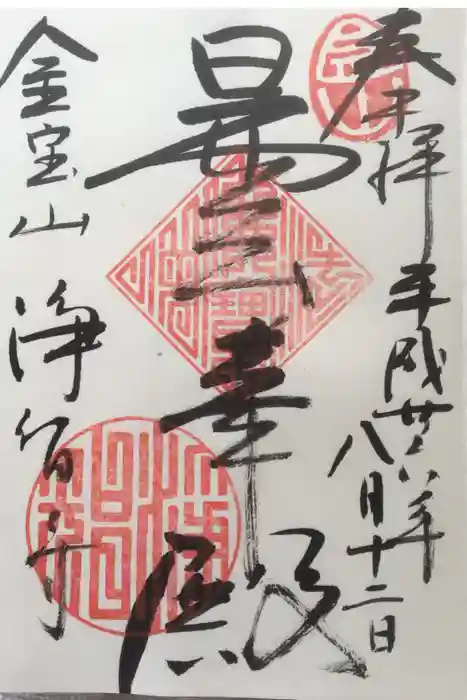 奉拝
平成廿六年
八月十二日
曇華殿
金宝山
浄智寺